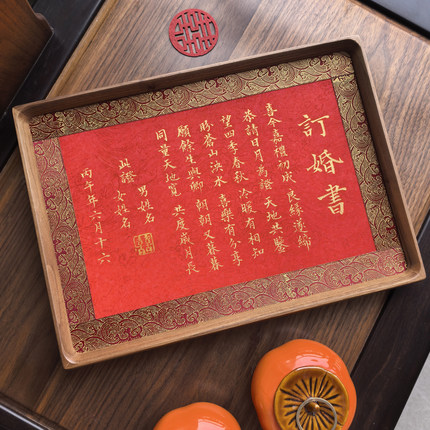 訂婚書
喜今嘉禮初成 良緣遂締
恭請日月為證 天地共鑒
望四季春秋 冷暖有相知
盼蒼山水 喜樂有分享
願餘生與卿 朝朝又暮暮
同量天地寬 共度歲月長
此證
男姓名
女姓名
丙午年六月十六